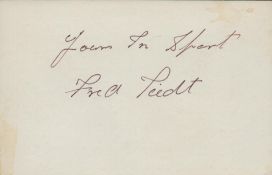 Yours In Sport
Fred Tiedt